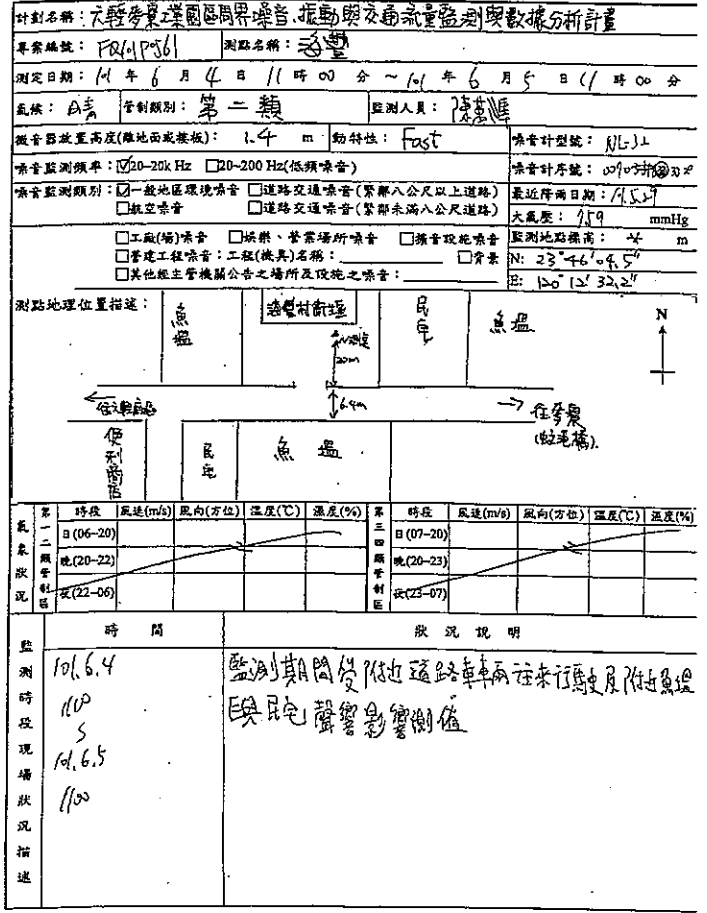 計劃名稱：六輕麥寮工業園區周界噪音、振動與交通流量監測與數據分析計畫
專案編號：FQ101P0561 測點名稱：海豐
測定日期：101 年 6 月 4 日 11 時 00 分 ~ 101 年 6 月 5 日 11 時 00 分
氣候：晴 管制類別：第二類 監測人員：
微音器放置高度(離地面或樓板)：1.4 m 動特性：Fast 噪音計型號：NL-32
噪音監測頻率：☑20~20k Hz □20~200 Hz(低頻噪音) 噪音計序號：
噪音監測類別：☑一般地區環境噪音 □道路交通噪音(緊鄰八公尺以上道路) 最近降雨日期：101.5.29
□航空噪音 □道路交通噪音(緊鄰未滿八公尺道路) 大氣壓：759 mmHg
□工廠(場)噪音 □娛樂、營業場所噪音 □擴音設施噪音 監測地點標高： m
□營建工程噪音：工程(機具)名稱： □背景 N: 23°46'04.5"
□其他經主管機關公告之場所及設施之噪音： E: 120°12'32.2"
測點地理位置描述：
魚塭
海豐村
民宅
魚塭
N
測點
20m
6.4m
往六輕廠區
→ 往麥寮
便利商店
民宅
魚塭
氣象狀況
第一二類管制區 時段 風速(m/s) 風向(方位) 溫度(℃) 濕度(%) 第三四類管制區 時段 風速(m/s) 風向(方位) 溫度(℃) 濕度(%)
日(06~20) 日(07~20)
晚(20~22) 晚(20~23)
夜(22~06) 夜(23~07)
監測時段現場狀況描述
時間 狀況說明
101.6.4 監測期間受附近道路車輛往來行駛及附近魚塭
1100 與民宅聲響影響測值
101.6.5
1100